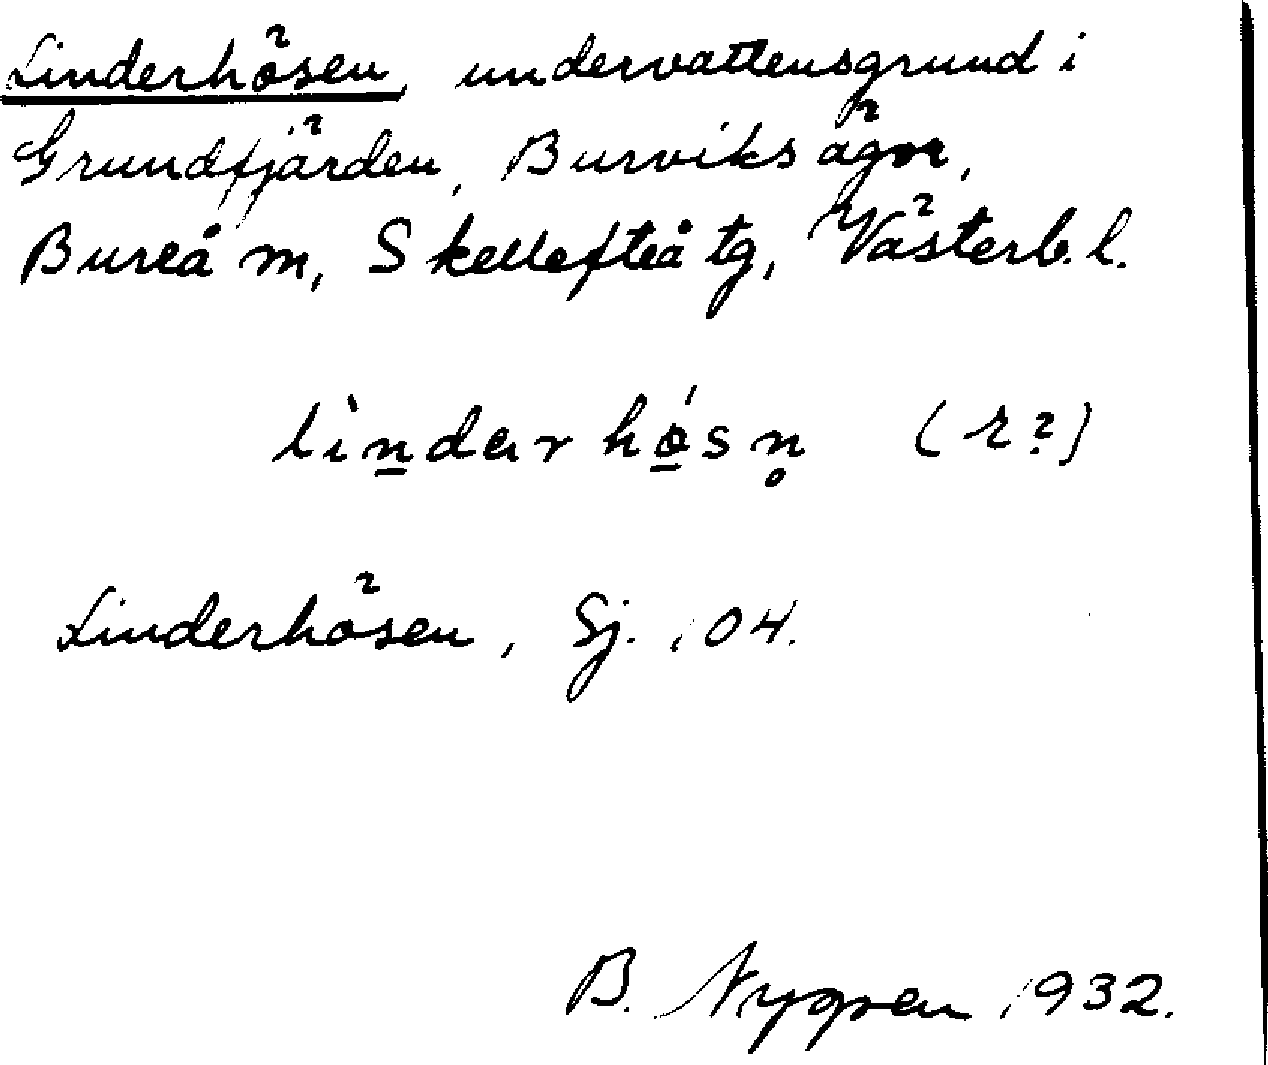 Linderhösen, undervattensgrund i
Grundfjärden, Burviks ägor,
Bureå m, Skellefteå tg, Västerb. l.
lìn̠dər hǿ̠sn̥ (r?)
Linderhösen, Sj. 104.
B. Nygren 1932.